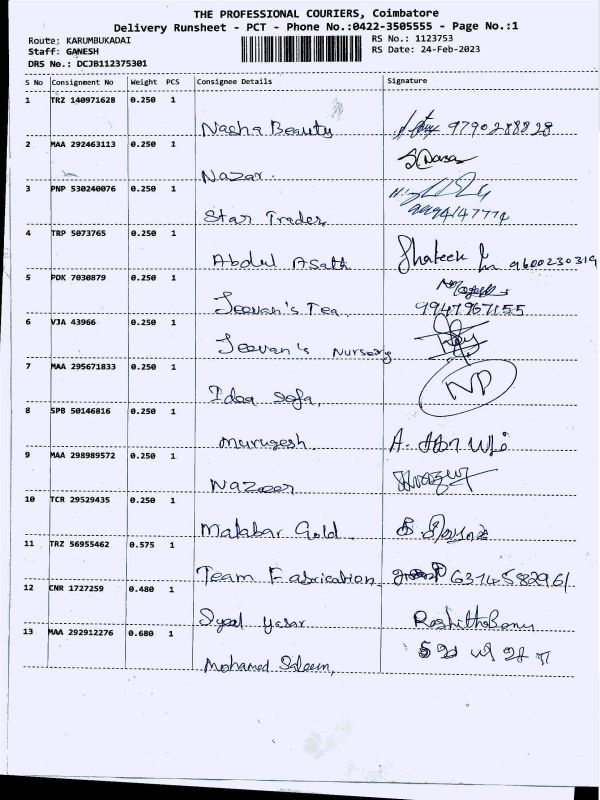 THE PROFESSIONAL COURIERS, Coimbatore
Delivery Runsheet - PCT - Phone No.:0422-3505555 - Page No.:1
Route: KARUMBUKADAI
RS No.: 1123753
Staff: GANESH
RS Date: 24-Feb-2023
DRS No.: DCJB112375301
S No Consignment No Weight PCS Consignee Details Signature
1 TRZ 140971628 0.250 1
Nasha Beauty 9790288828
2 MAA 292463113 0.250 1
Nazar.
3 PNP 530240076 0.250 1
Star Traders
9994147774
4 TRP 5073765 0.250 1
Abdul Asath 9600230319
5 PDK 7030879 0.250 1
Jeevan's Tea. 9947967155
6 VJA 43966 0.250 1
Jeevan's Nursery
7 MAA 295671833 0.250 1
Idea Sofa, NP
8 SPB 50146816 0.250 1
Murugesh.
9 MAA 298989572 0.250 1
Nazeer
10 TCR 29529435 0.250 1
Malabar Gold.
11 TRZ 56955462 0.575 1
Team Fabrication 6374582961
12 CNR 1727259 0.480 1
Syed Yasar
13 MAA 292912276 0.680 1
Mohamed Saleem,